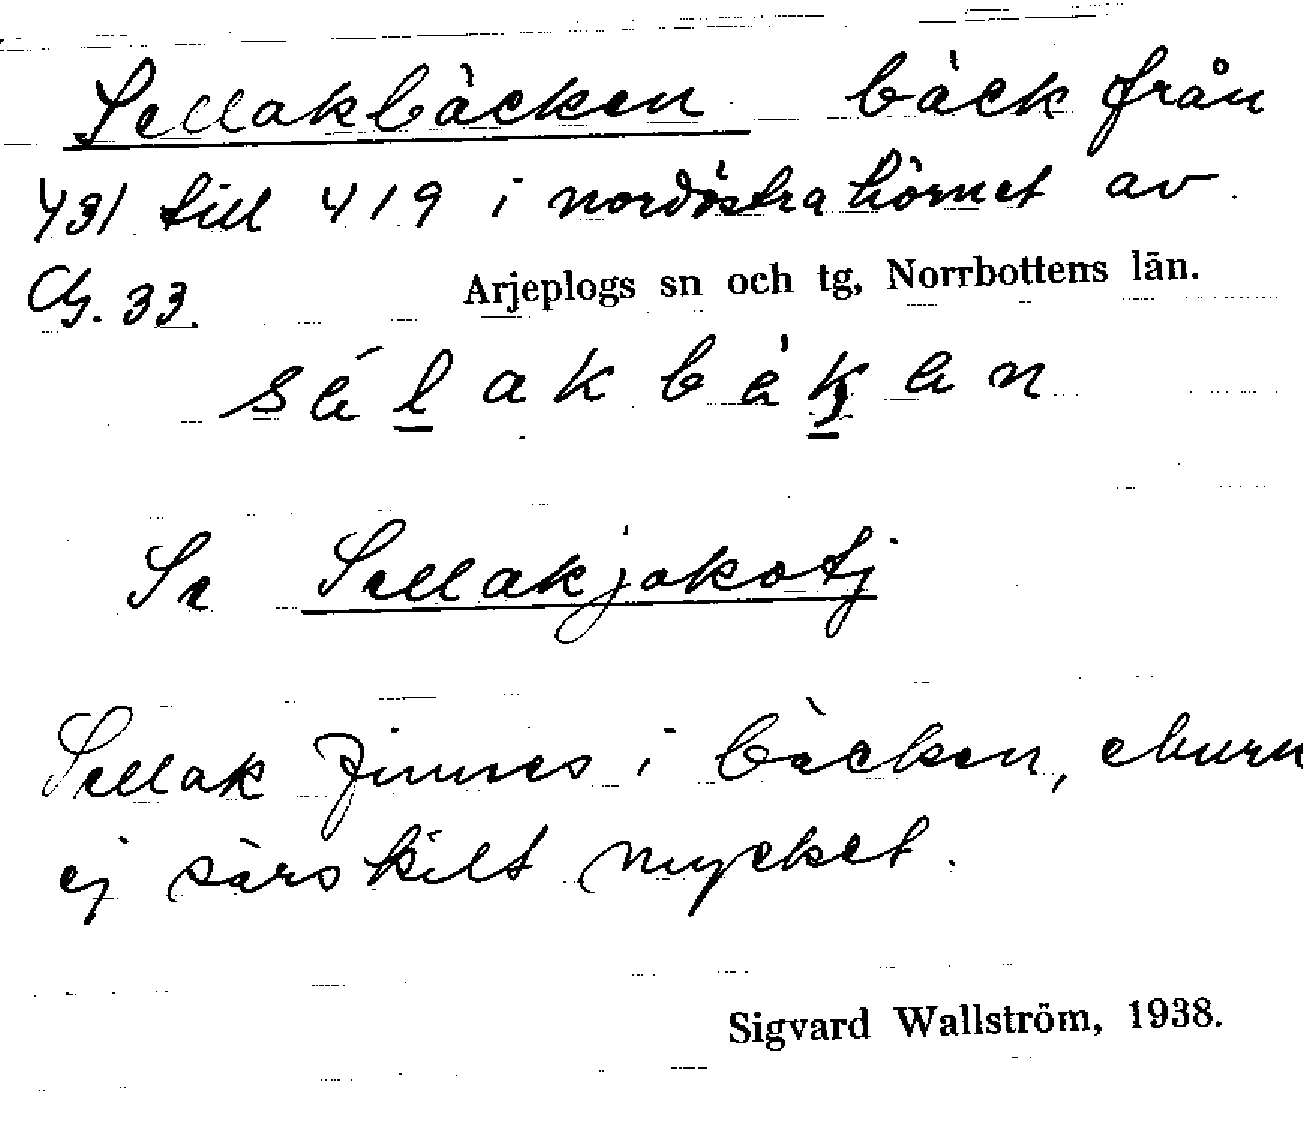 Sellakbäcken bäck från
431 till 419 i nordöstra hörnet av
Cg. 33. Arjeplogs sn och tg, Norrbottens län.
Se Sellakjokotj
Sellak finnes i bäcken, ehuru
ej särskilt mycket.
Sigvard Wallström, 1938.